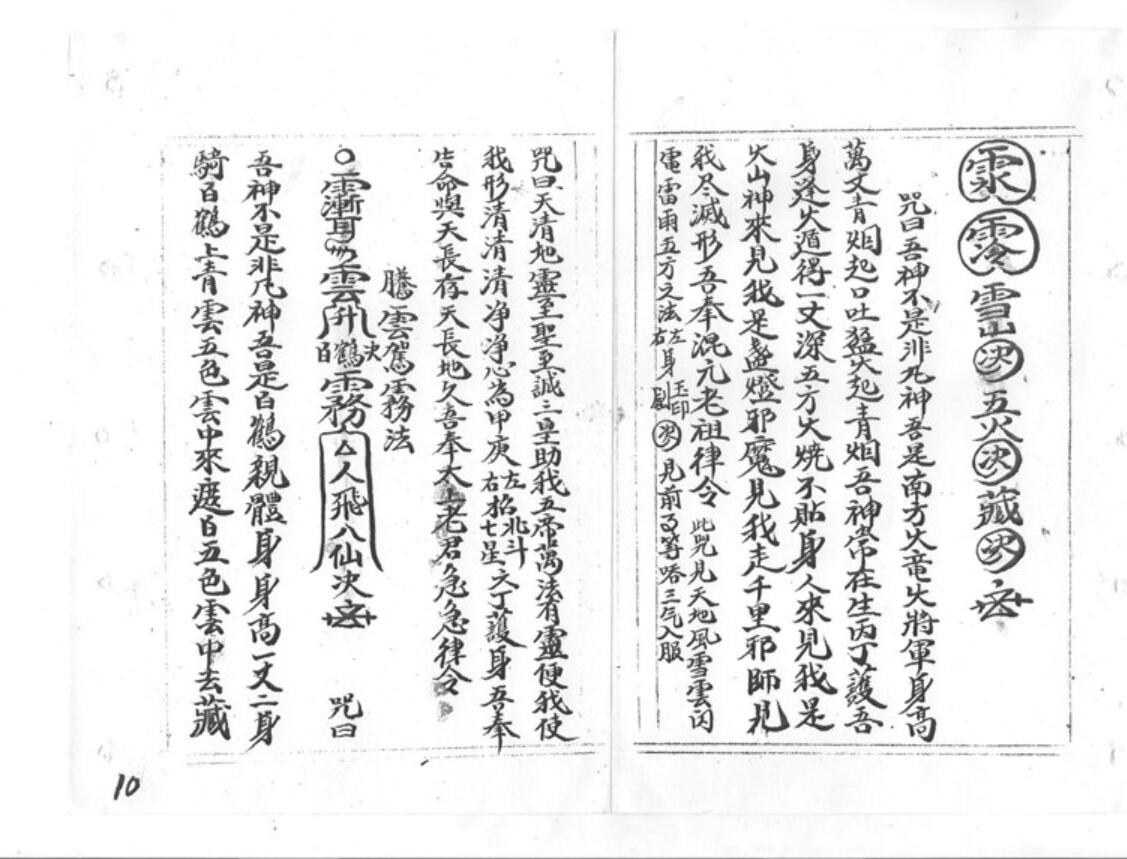 雪山決五火決藏決
咒曰吾神不是非凡神吾是南方火竜火將軍身高
萬丈青烟起口吐猛火起青烟吾神常在生丙丁護吾
身逢火遁得一丈深五方火燒不貼身人來見我是
火山神來見我是盞燈邪魔見我走千里邪師見
我尽滅形吾奉混元老祖律令 此咒見天地風雪雲閃
電雷雨五方之法左右身玉印劍決見前 三气入服
咒曰天清地靈至聖至誠三皇助我五帝萬法有靈便我使
我形清清清净净心為甲庚左招北斗右七星六丁護身吾奉
告命與天長存天長地久吾奉太上老君急急律令
騰雲駕霧法
○ 耳 雲升百鶴決霧 人飛八仙決 咒曰
吾神不是非凡神吾是白鶴親體身身高一丈二身
騎百鶴上青雲五色雲中來 百五色雲中去藏
10